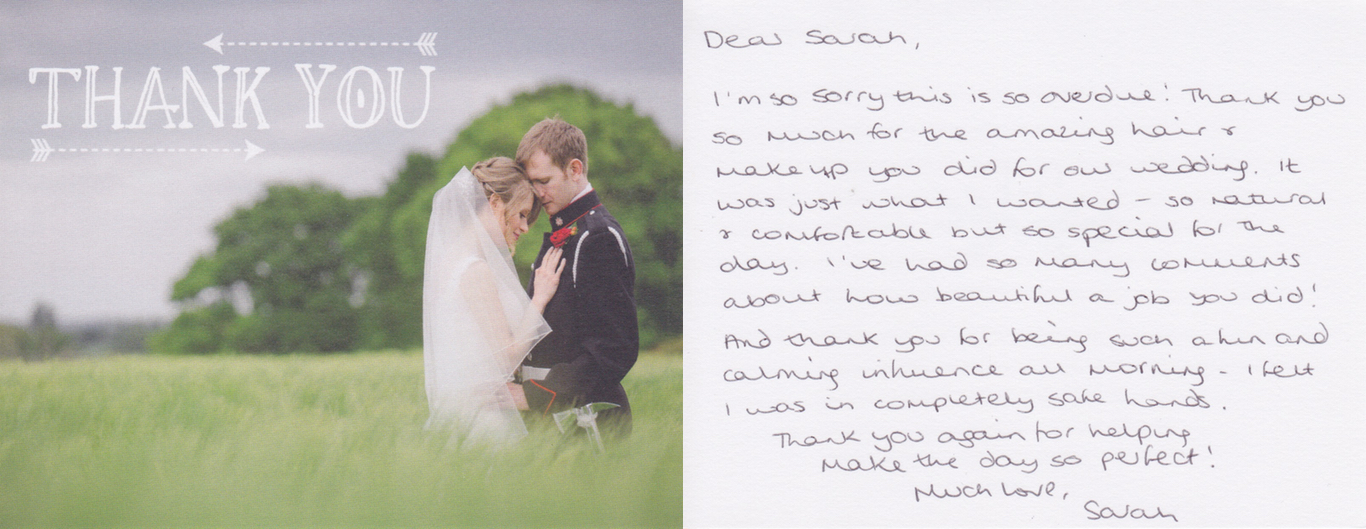 THANK YOU
Dear Sarah,
I'm so sorry this is so overdue! Thank you
so much for the amazing hair &
makeup you did for our wedding. It
was just what I wanted – so natural
& comfortable but so special for the
day. I've had so many comments
about how beautiful a job you did!
And thank you for being such a fun and
calming influence all morning – I felt
I was in completely safe hands.
Thank you again for helping
make the day so perfect!
Much love,
Sarah